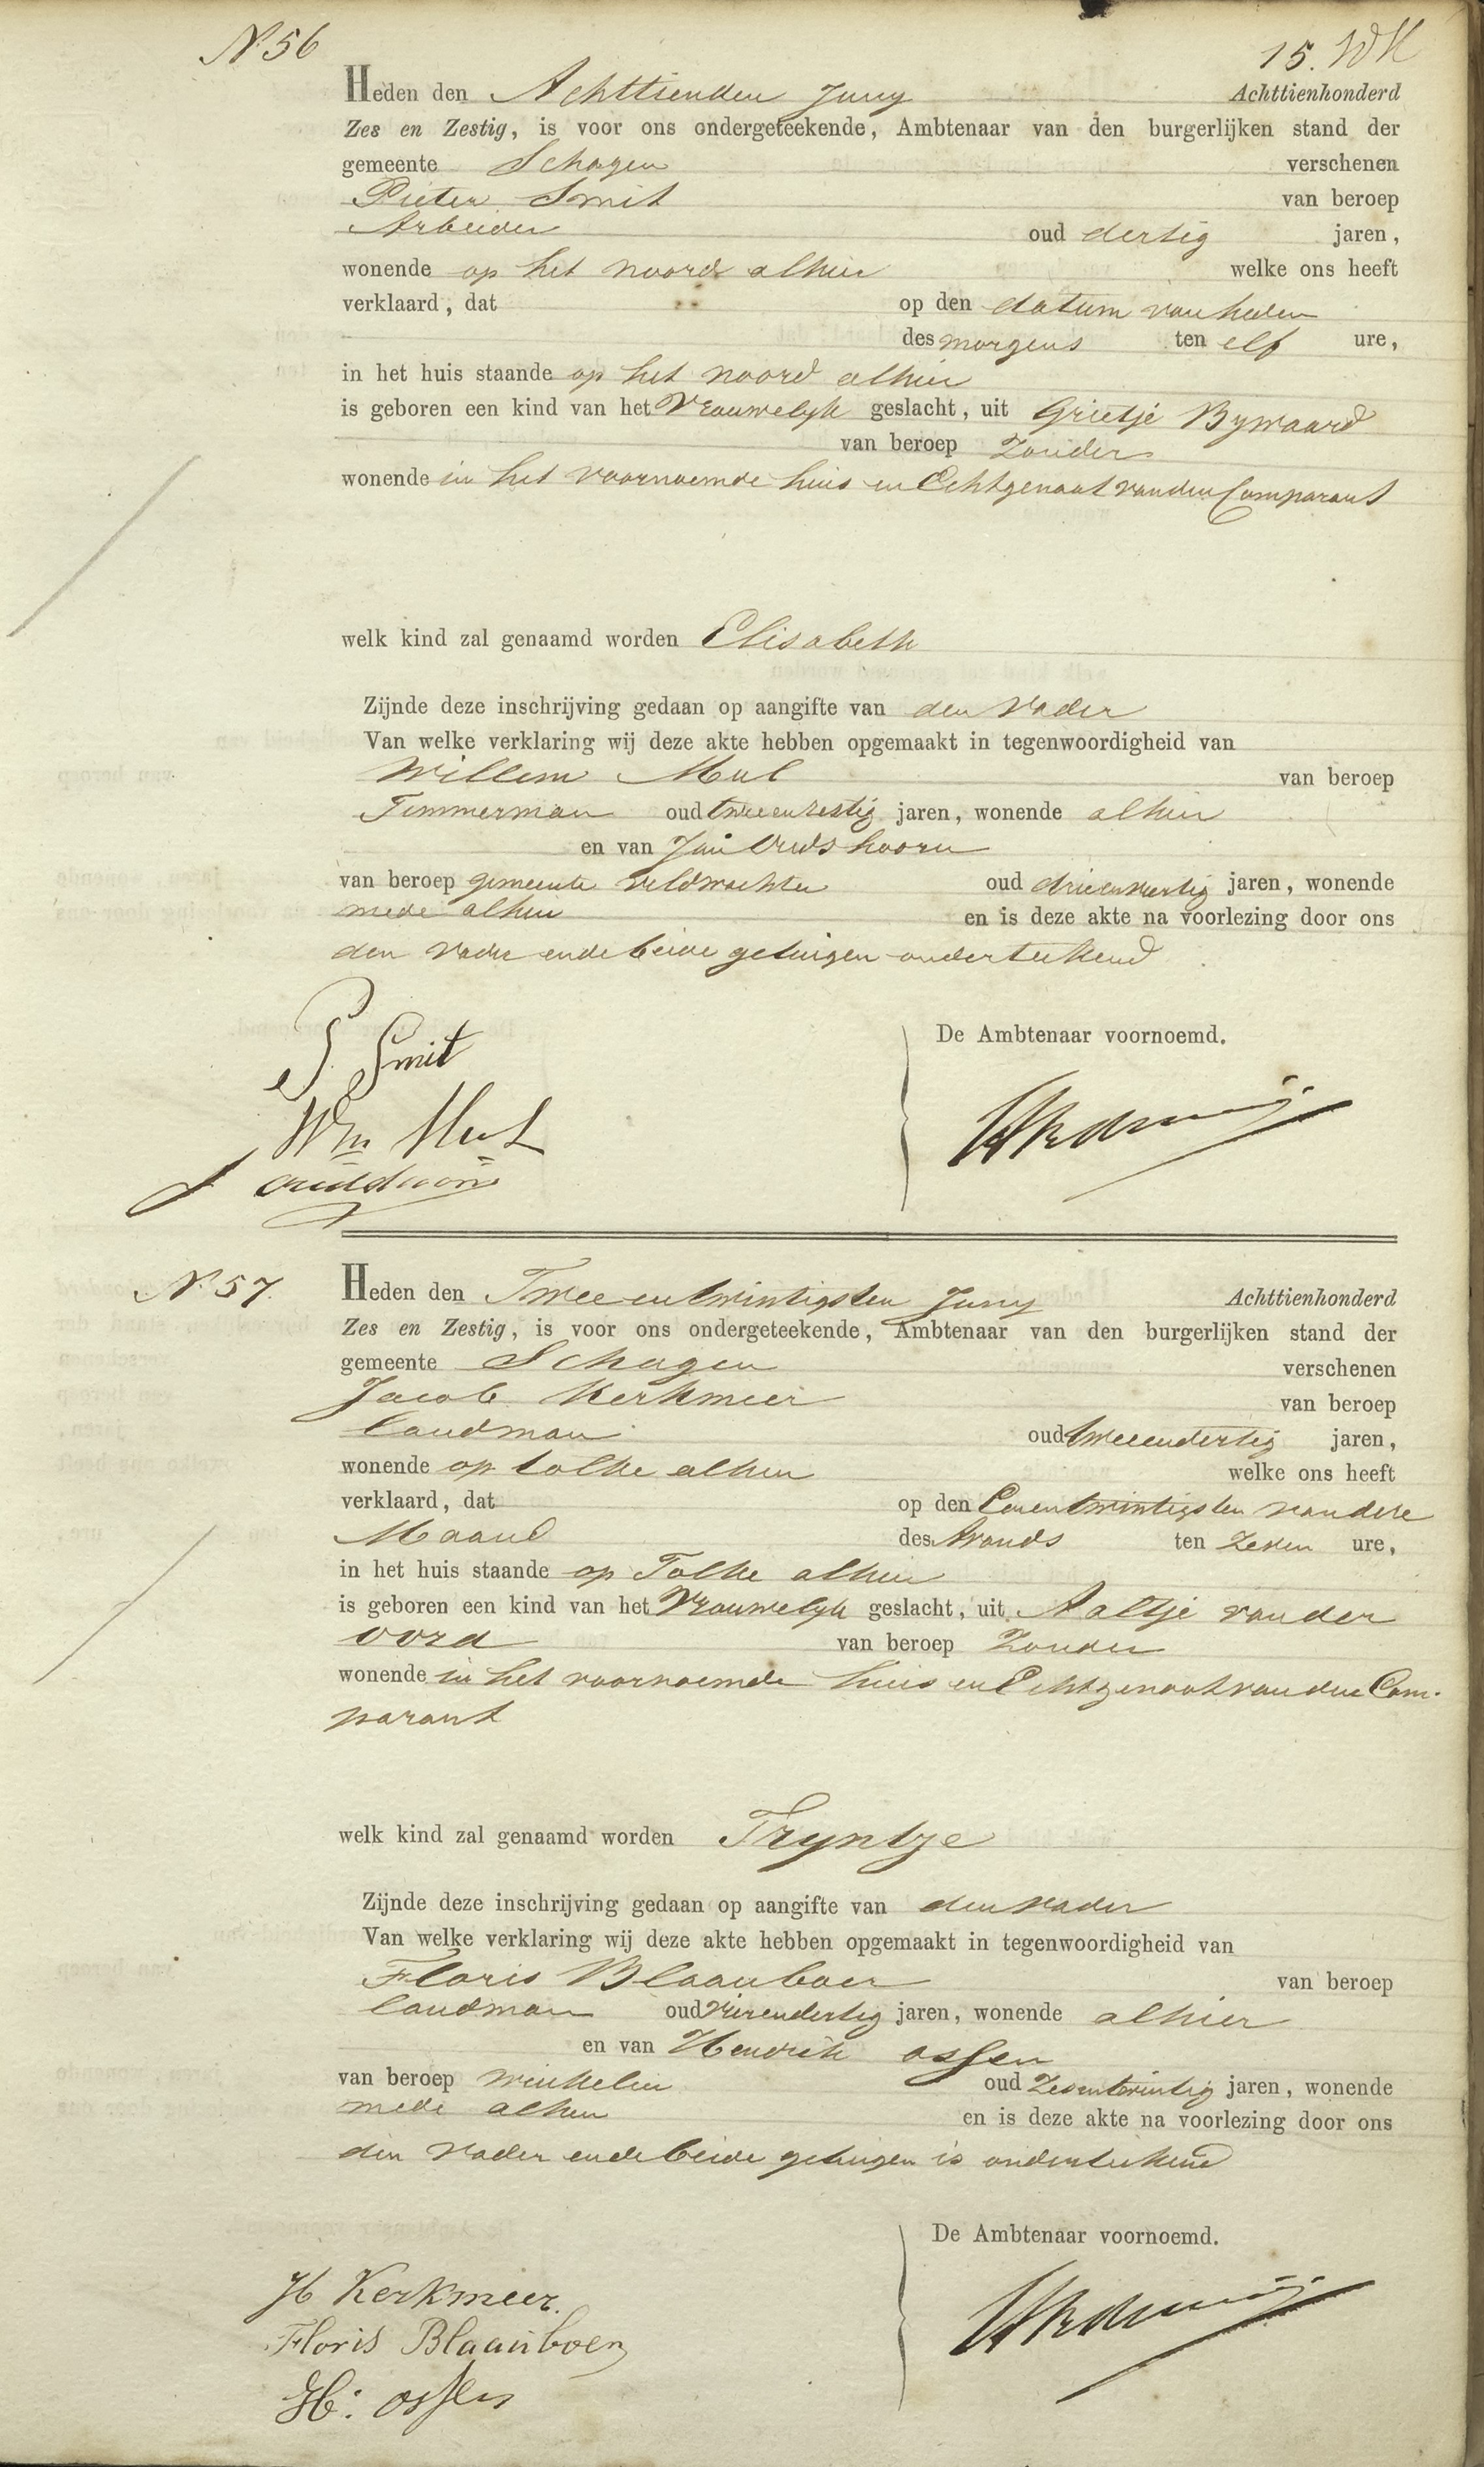 N 56
15.
Heden den Achttienden Juny Achttienhonderd
Zes en Zestig, is voor ons ondergeteekende, Ambtenaar van den burgerlijken stand der
gemeente Schagen verschenen
Pieter Smit van beroep
Arbeider oud dertig jaren,
wonende op het noord alhier welke ons heeft
verklaard, dat op den datum van heden
des morgens ten elf ure,
in het huis staande op het noord alhier
is geboren een kind van het Vrouwelyk geslacht, uit Grietje Bywaard
van beroep Zonder
wonende in het voornoemde huis en Echtgenoot van den Comparant
welk kind zal genaamd worden Elisabeth
Zijnde deze inschrijving gedaan op aangifte van den Vader
Van welke verklaring wij deze akte hebben opgemaakt in tegenwoordigheid van
Willem Mul van beroep
Timmerman oud tweeenzestig jaren, wonende alhier
en van Jan Oudshoorn
van beroep gemeente veldwachter oud drieenveertig jaren, wonende
mede alhier en is deze akte na voorlezing door ons
den Vader en de beide getuigen onderteekend
De Ambtenaar voornoemd.
P. Smit
Wm Mul
J Oudshoorn
N 57.
Heden den Tweeentwintigsten Juny Achttienhonderd
Zes en Zestig, is voor ons ondergeteekende, Ambtenaar van den burgerlijken stand der
gemeente Schagen verschenen
Jacob Kerkmeer van beroep
landman oud tweeendertig jaren,
wonende op tolke alhier welke ons heeft
verklaard, dat op den Eenentwintigsten van deze
Maand des Avonds ten Zeven ure,
in het huis staande op Tolke alhier
is geboren een kind van het Vrouwelyk geslacht, uit Aaltje van der
oord van beroep Zonder
wonende in het voornoemde huis en Echtgenoot van den Com-
parant
welk kind zal genaamd worden Tryntje
Zijnde deze inschrijving gedaan op aangifte van den Vader
Van welke verklaring wij deze akte hebben opgemaakt in tegenwoordigheid van
Floris Blaauboer van beroep
landman oud vierendertig jaren, wonende alhier
en van Hendrik ossen
van beroep winkelier oud Zesentwintig jaren, wonende
mede alhier en is deze akte na voorlezing door ons
den Vader en de beide getuigen is onderteekend
De Ambtenaar voornoemd.
Kerkmeer.
Floris Blaauboer
H: ossen